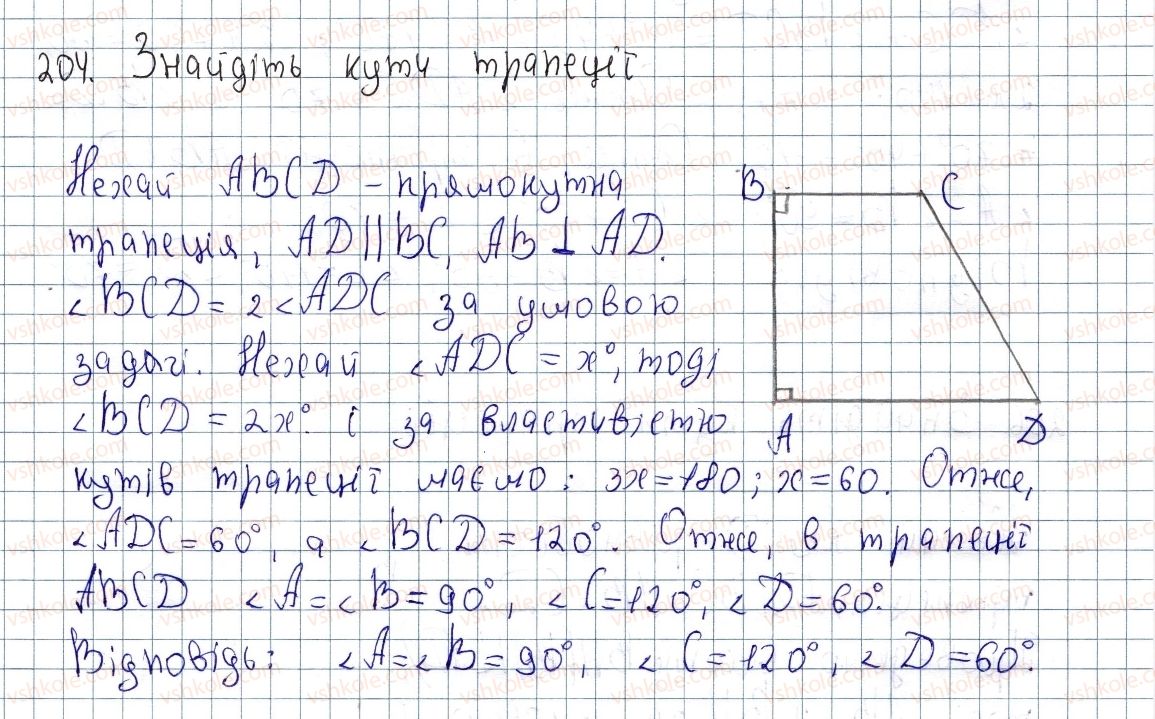 204. Знайдіть кути трапеції
Нехай ABCD – прямокутна
трапеція, AD||BC, AB ⊥ AD.
∠BCD = 2∠ADC за умовою
задачі. Нехай ∠ADC = x°, тоді
∠BCD = 2x°. і за властивістю
кутів трапеції маємо: 3x=180; x=60. Отже,
∠ADC=60°, а ∠BCD=120°. Отже, в трапеції
ABCD ∠A=∠B=90°, ∠C=120°, ∠D=60°.
Відповідь: ∠A=∠B=90°, ∠C=120°, ∠D=60°.
B
C
A
D
vshkole.com